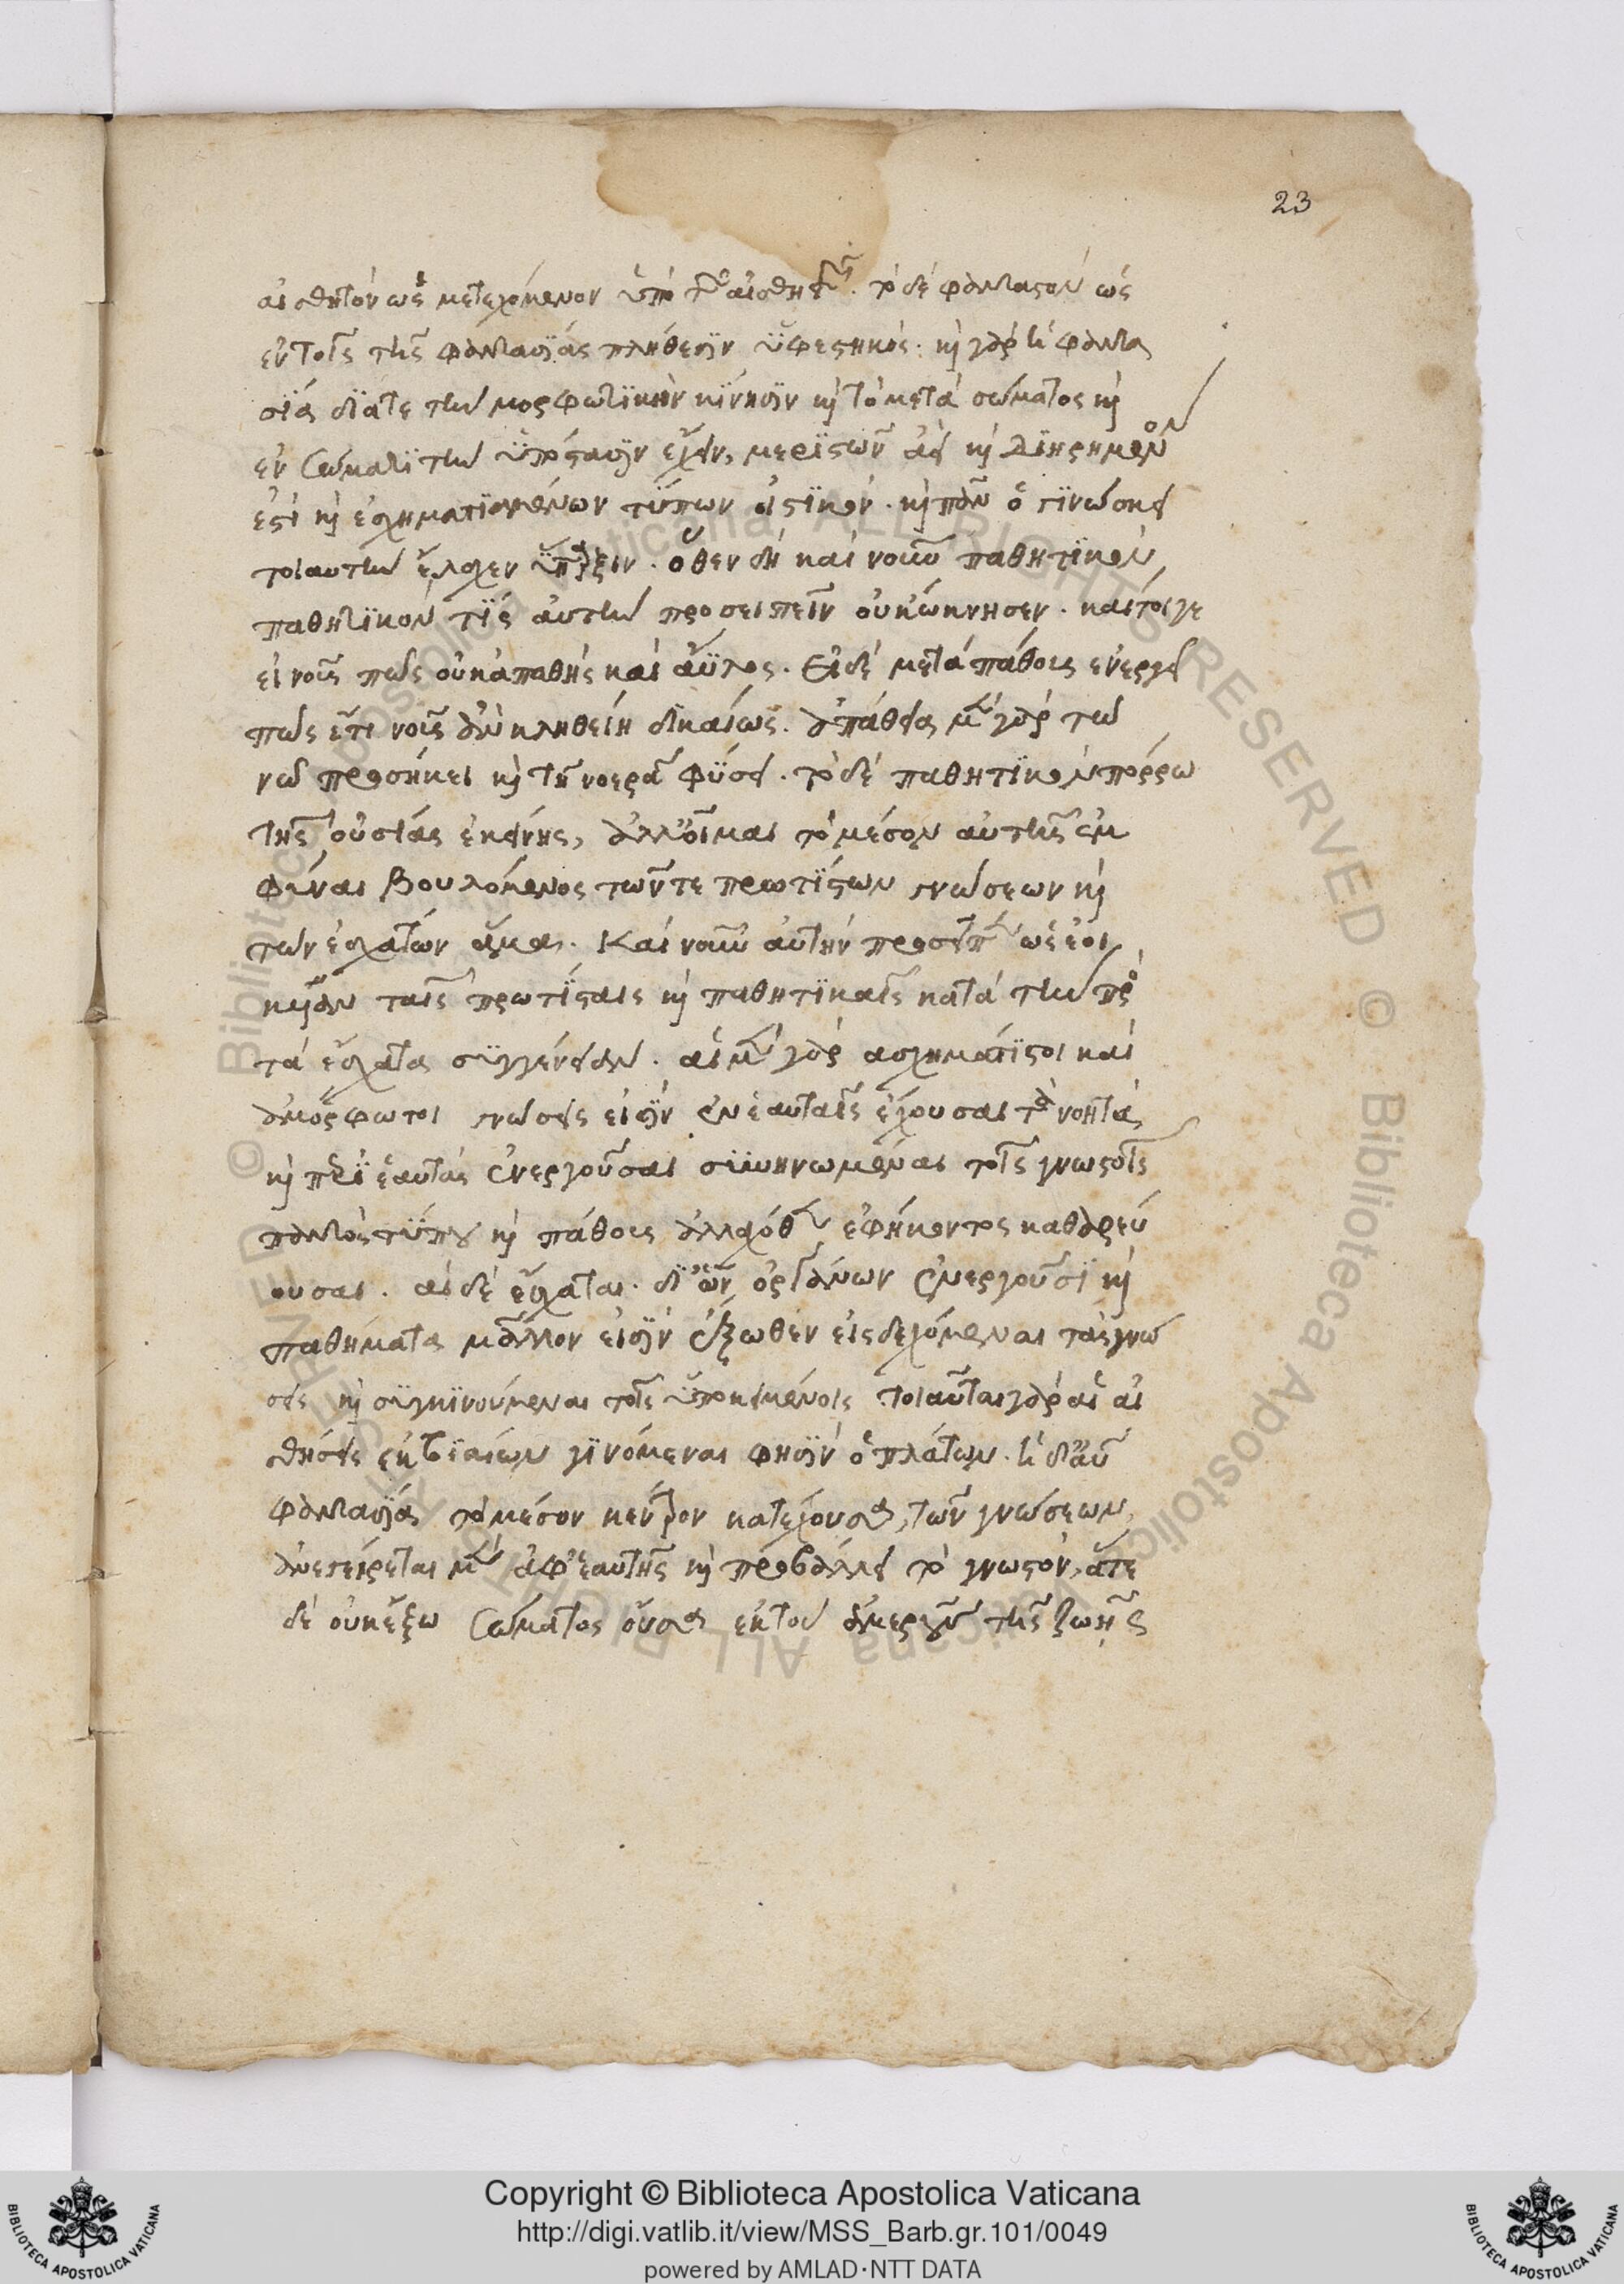 23
αἰσθητόν ὡς μετεχόμενον ὑπό τῶν αἰσθητῶν. τό δέ φανταστόν ὡς
ἐν τοῖς τῆς φαντασίας πλήθεσιν ὑφεστηκός. καὶ γάρ ἡ φαντα
σία διάτε τὴν μορφωτικήν κίνησιν καὶ τό μετά σώματος καὶ
ἐν σώματι τὴν ὑπόστασιν ἔχειν, μεριστῶν ἀεὶ καὶ διῃρημένων
ἐστί καὶ ἐσχηματισμένων τύπων οἰστικόν. καὶ πᾶν ὅ γινώσκει
τοιαύτην ἔλαχεν ὕπαρξιν. ὅθεν δή καί νοῦν παθητικόν
παθητικόν τίς αὐτήν προσειπεῖν οὐκ ὤκνησεν. καίτοιγε
εἰ νοῦς πῶς οὐκ ἀπαθής καί ἄϋλος. Εἰ δέ μετά πάθους ἐνεργεῖ
πῶς ἔτι νοῦς ἄν κληθείη δικαίως. ἀπάθεια μὲν γάρ τῷ
νῷ προσήκει καὶ τῇ νοερᾷ φύσει. τό δέ παθητικόν πόρρω
τῆς οὐσίας ἐκείνης, ἀλλ' οἶμαι τό μέσον αὐτῆς ἐμ
φῆναι βουλόμενος τῶν τε πρωτίστων γνώσεων καὶ
τῶν ἐσχάτων ἅμα. Καί νοῦν αὐτήν προσεῖπεν ὡς ἐοι
κυῖαν ταῖς πρωτίσταις καὶ παθητικαῖς κατά τὴν πρός
τά ἔσχατα συγγένειαν. αἱ μὲν γάρ ἀσχημάτιστοι καί
ἀμόρφωτοι γνώσεις εἰσίν ἐν ἑαυταῖς ἔχουσαι τὰ νοητά
καὶ περὶ ἑαυτάς ἐνεργοῦσαι συνηνωμέναι τοῖς γνωστοῖς
παντός τύπου καὶ πάθους ἀλλαχόθεν ἐφήκοντος καθαρεύ
ουσαι. αἱ δέ ἔσχαται. δι' ὧν ὀργάνων ἐνεργοῦσι καὶ
παθήματα μᾶλλον εἰσίν ἔξωθεν εἰσδεχόμεναι τάς γνώ
σεις καὶ συγκινούμεναι τοῖς ὑποκειμένοις τοιαῦται γάρ αἱ αἰ
σθήσεις ἐκ βιαίων γινόμεναι φησίν ὁ πλάτων. ἡ δ' αὖ
φαντασία τό μέσον κέντρον κατέχουσα, τῶν γνώσεων,
ἀνεγείρεται μὲν ἀφ' ἑαυτῆς καὶ προβάλλει τό γνωστόν, ἅτε
δέ οὐκ ἔξω σώματος οὖσα ἐκ τοῦ ἀμεροῦς τῆς ζωῆς
Copyright © Biblioteca Apostolica Vaticana
http://digi.vatlib.it/view/MSS_Barb.gr.101/0049
powered by AMLAD·NTT DATA